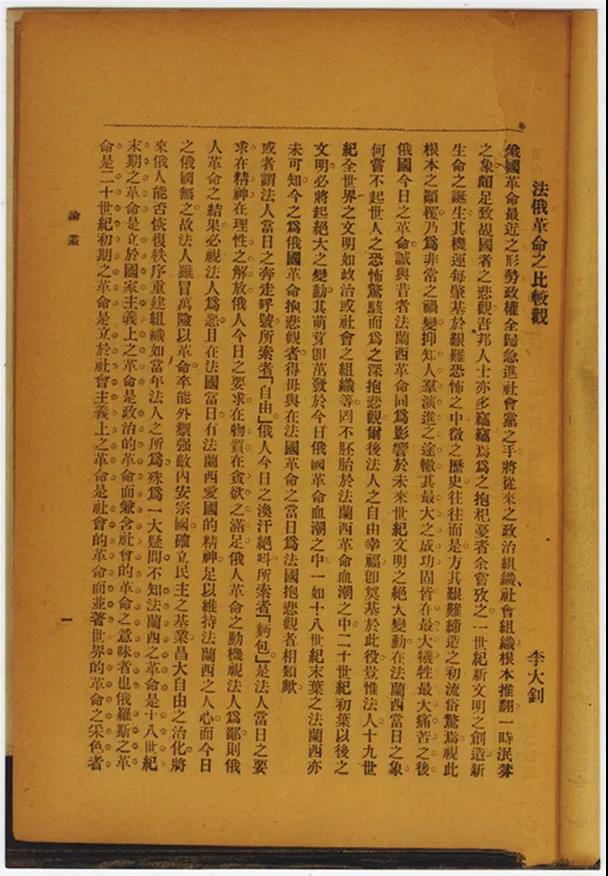 法俄革命之比較觀 李大釗
俄國革命最近之形勢政權全歸急進社會黨之手將從來之政治組織、社會組織根本推翻一時泯棼
之象頗足致覘國者之悲觀吾邦人士亦多竊竊焉爲之抱杞憂者余嘗攷之一世紀新文明之創造新
生命之誕生其機運每肇基於艱難恐怖之中徵之歷史往往而是方其艱難締造之初流俗驚焉視此
根本之顚覆乃爲非常之禍變抑知人羣演進之途轍其最大之成功固皆在最大犧牲最大痛苦之後
俄國今日之革命誠與昔者法蘭西革命同爲影響於未來世紀文明之絕大變動在法蘭西當日之象
何嘗不起世人之恐怖驚駭而爲之深抱悲觀爾後法人之自由幸福卽奠基於此役豈惟法人十九世
紀全世界之文明如政治或社會之組織等罔不胚胎於法蘭西革命血潮之中二十世紀初葉以後之
文明必將起絕大之變動其萌芽卽茁發於今日俄國革命血潮之中一如十八世紀末葉之法蘭西亦
未可知今之爲俄國革命抱悲觀者得毋與在法國革命之當日爲法國抱悲觀者相類歟
或者謂法人當日之奔走呼號所索者「自由」俄人今日之渙汗絕叫所索者「麪包」是法人當日之要
求在精神在理性之解放俄人今日之要求在物質在貪欲之滿足俄人革命之動機視法人爲鄙則俄
人革命之結果必視法人爲惡且在法國當日有法蘭西愛國的精神足以維持法蘭西之人心而今日
之俄國無之故法人雖冒萬險以革命卒能外禦强敵內安宗國確立民主之基業昌大自由之治化將
來俄人能否恢復秩序重建組織如當年法人之所爲殊爲一大疑問不知法蘭西之革命是十八世紀
末期之革命是立於國家主義上之革命是政治的革命而兼含社會的革命之意味者也俄羅斯之革
命是二十世紀初期之革命是立於社會主義上之革命是社會的革命而並著世界的革命之采色者
論叢
一